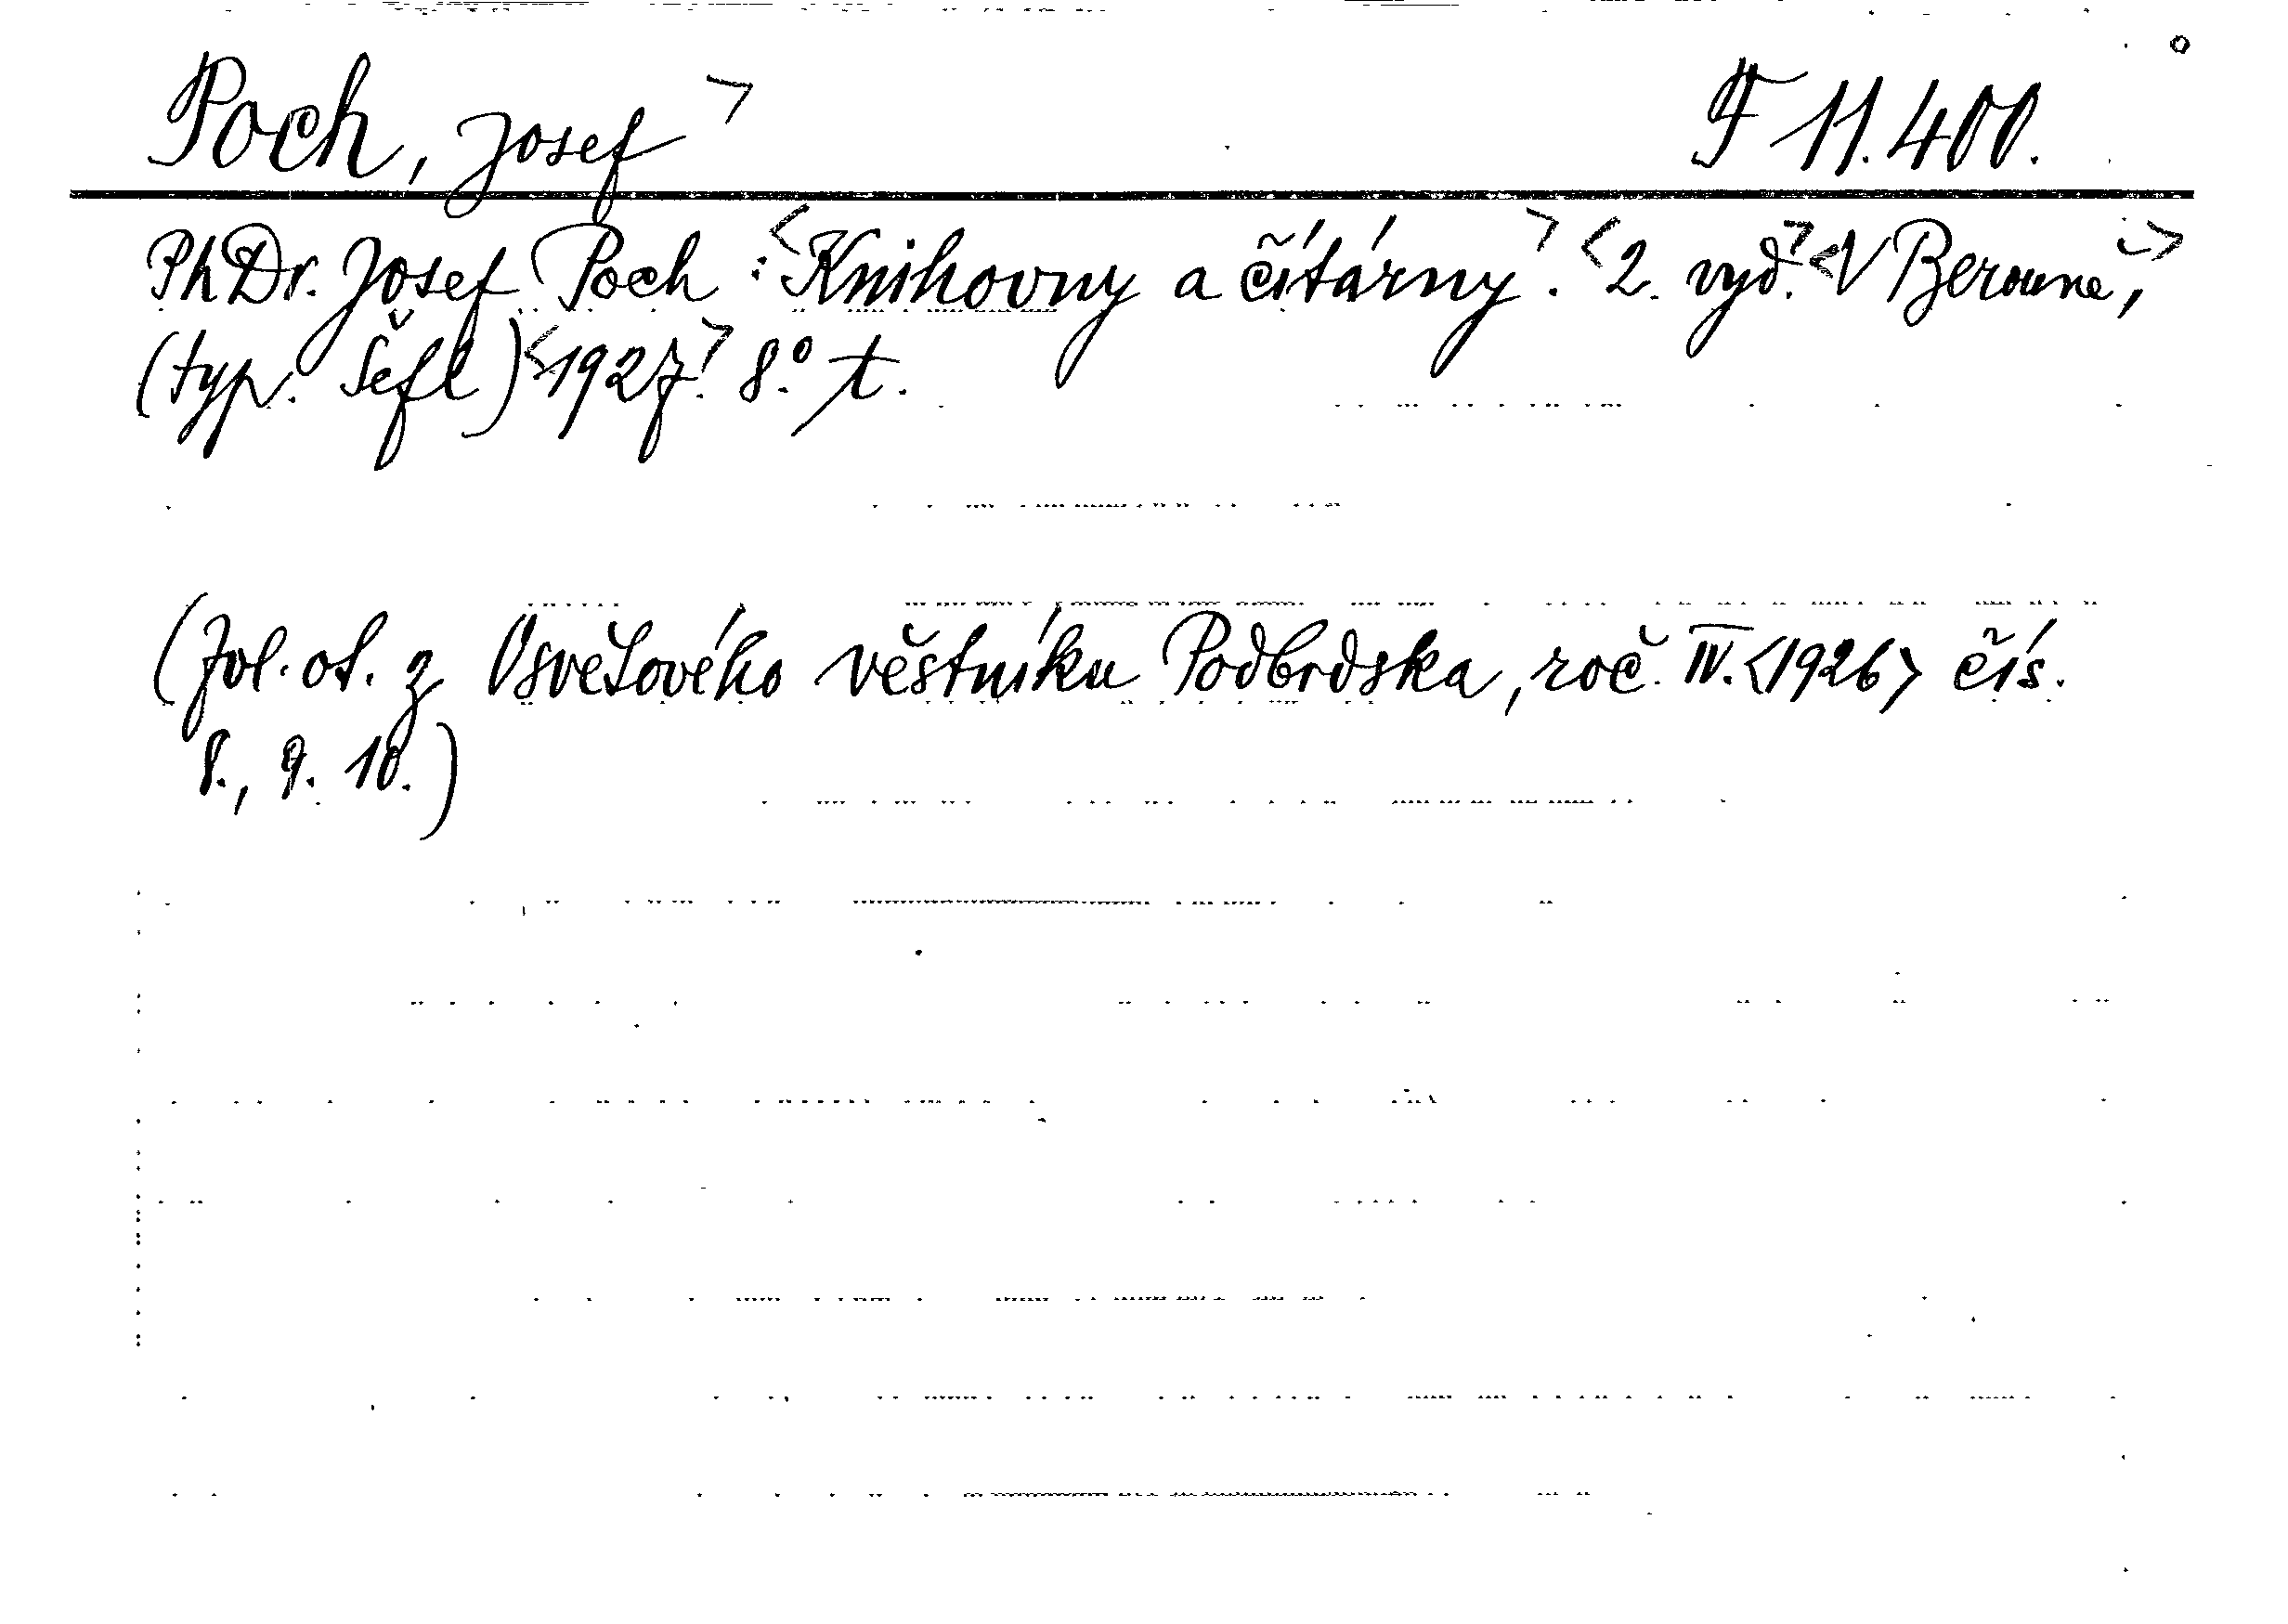 Poch, Josef > F 11.400.
PhDr. Josef Poch : <Knihovny a čítárny>. <2. vyd.> <V Berouně,>
(typ. Šefl) <1927.> 8.° t.
(Zvl. ot. z Osvětového věstníku Podbrdska, roč. IV. <1926> čís.
8., 9. 10.)